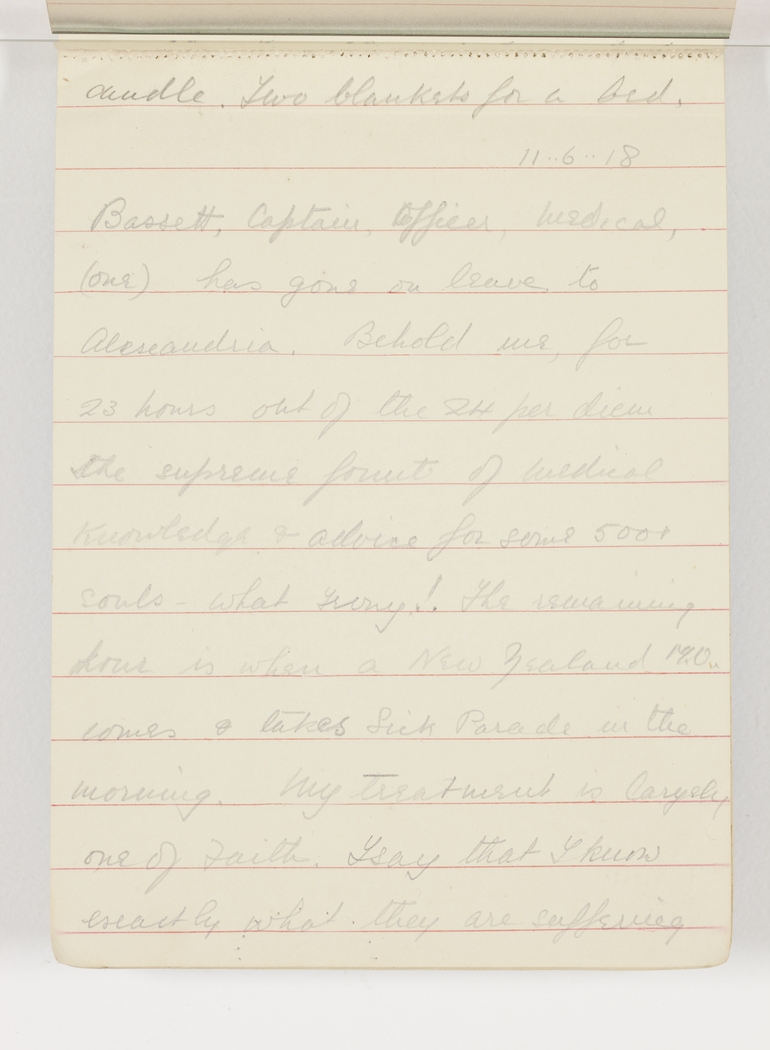 candle. Two blankets for a bed.
11..6..18
Bassett, Captain, Officer, Medical,
(one) has gone on leave to
Alexandria. Behold me, for
23 hours out of the 24 per diem
the supreme fount of medical
knowledge & advice for some 500
souls - what irony! The remaining
hour is when a New Zealand M.O.
comes & takes Sick Parade in the
morning. My treatment is largely
one of Faith. I say that I know
exactly what they are suffering